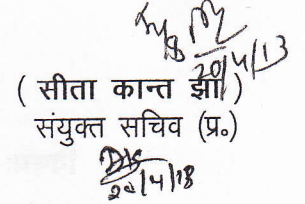 20/4/13
( सीता कान्त झा )
संयुक्त सचिव (प्र॰)
20/4/13